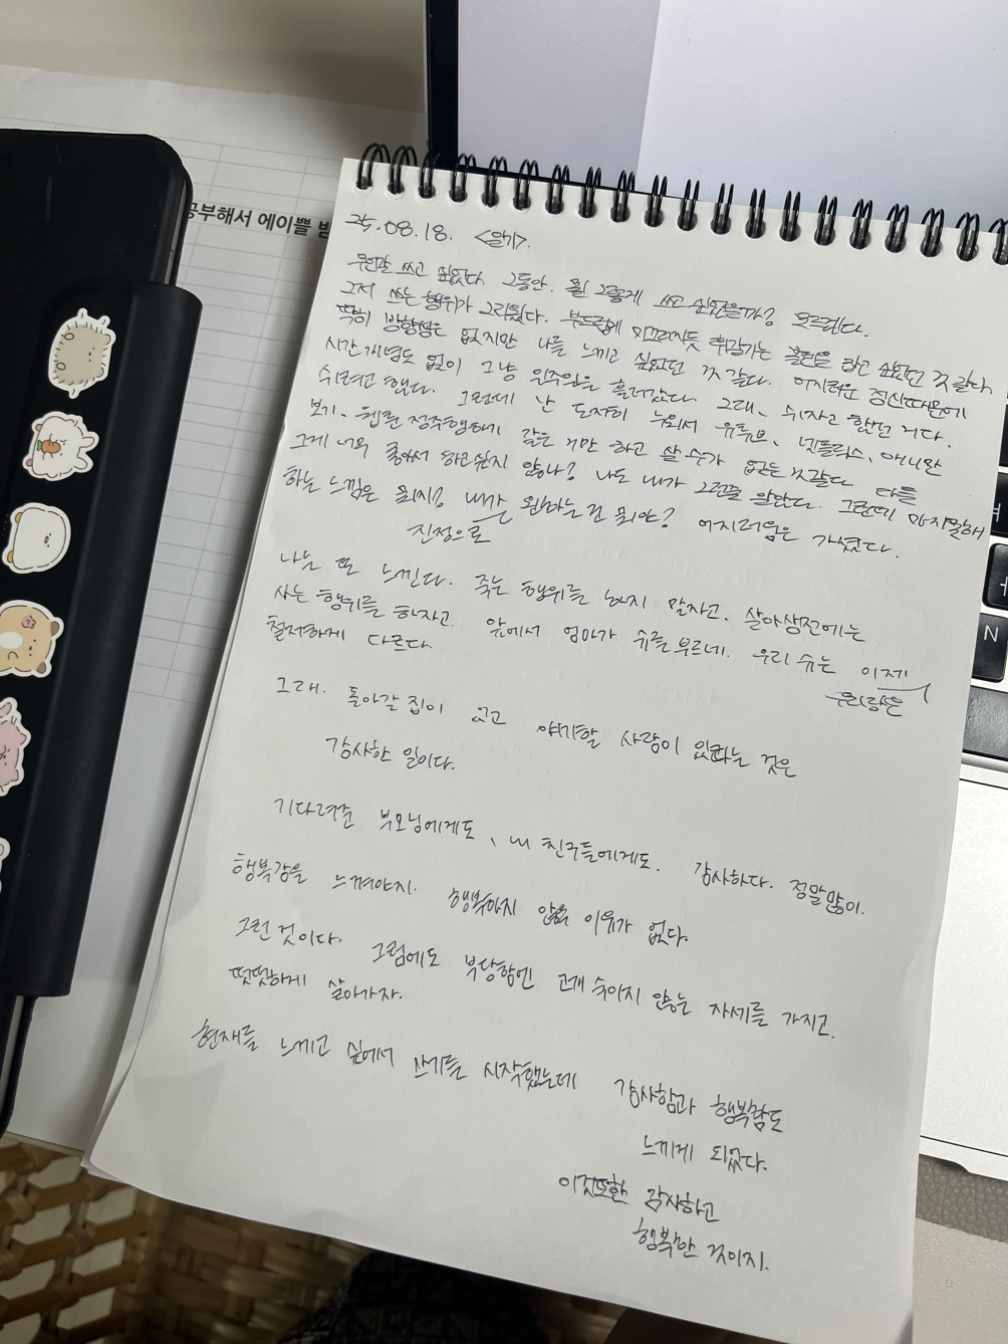 공부해서 에이쁠 받
25.08.18. <일기>.
무언갈 쓰고 싶었다. 그동안. 뭘 그렇게 쓰고 싶었을까? 모르겠다.
그저 쓰는 행위가 그리웠다. 부드럽게 미끄러지듯 휘갈기는 을 하고 싶었던 것 같다.
딱히 방향성은 없지만 나를 느끼고 싶었던 것 같다. 어지러운 정신때문에
시간개념도 없이 그냥 일주일을 흘려갔다. 그래、 쉬자고 했던 거다.
쉬려고 했다. 그런데 난 도저히 누워서 유튜브、넷플릭스、애니만
보기、웹툰 정주행하기 같은 거만 하고 살 수가 없는 것같다. 다들
그게 너무 좋아서 하고싶지 않나? 나도 내가 그런줄 알았다. 그런데 마지못해
하는 느낌은 뭐지? 내가 원하는 건 뭘까? 어지러움은 가셨다.
진정으로
나는 또 느낀다. 죽는 행위를 하지 말자고. 살아생전에는
사는 행위를 하자고. 앞에서 엄마가 슈를 부르네. 우리 슈는 이제
철저하게 다르다. 우리랑은
그래. 돌아갈 집이 있고 얘기할 사람이 있다는 것은
감사한 일이다.
기다려준 부모님에게도、내 친구들에게도. 감사하다. 정말많이.
행복감을 느껴야지. 행복하지 않을 이유가 없다.
그런 것이다. 그럼에도 부당함엔 고개 숙이지 않는 자세를 가지고.
떳떳하게 살아가자.
현재를 느끼고 싶어서 쓰기를 시작했는데 감사함과 행복함도
느끼게 되었다.
이것또한 감사하고
행복한 것이지.
N